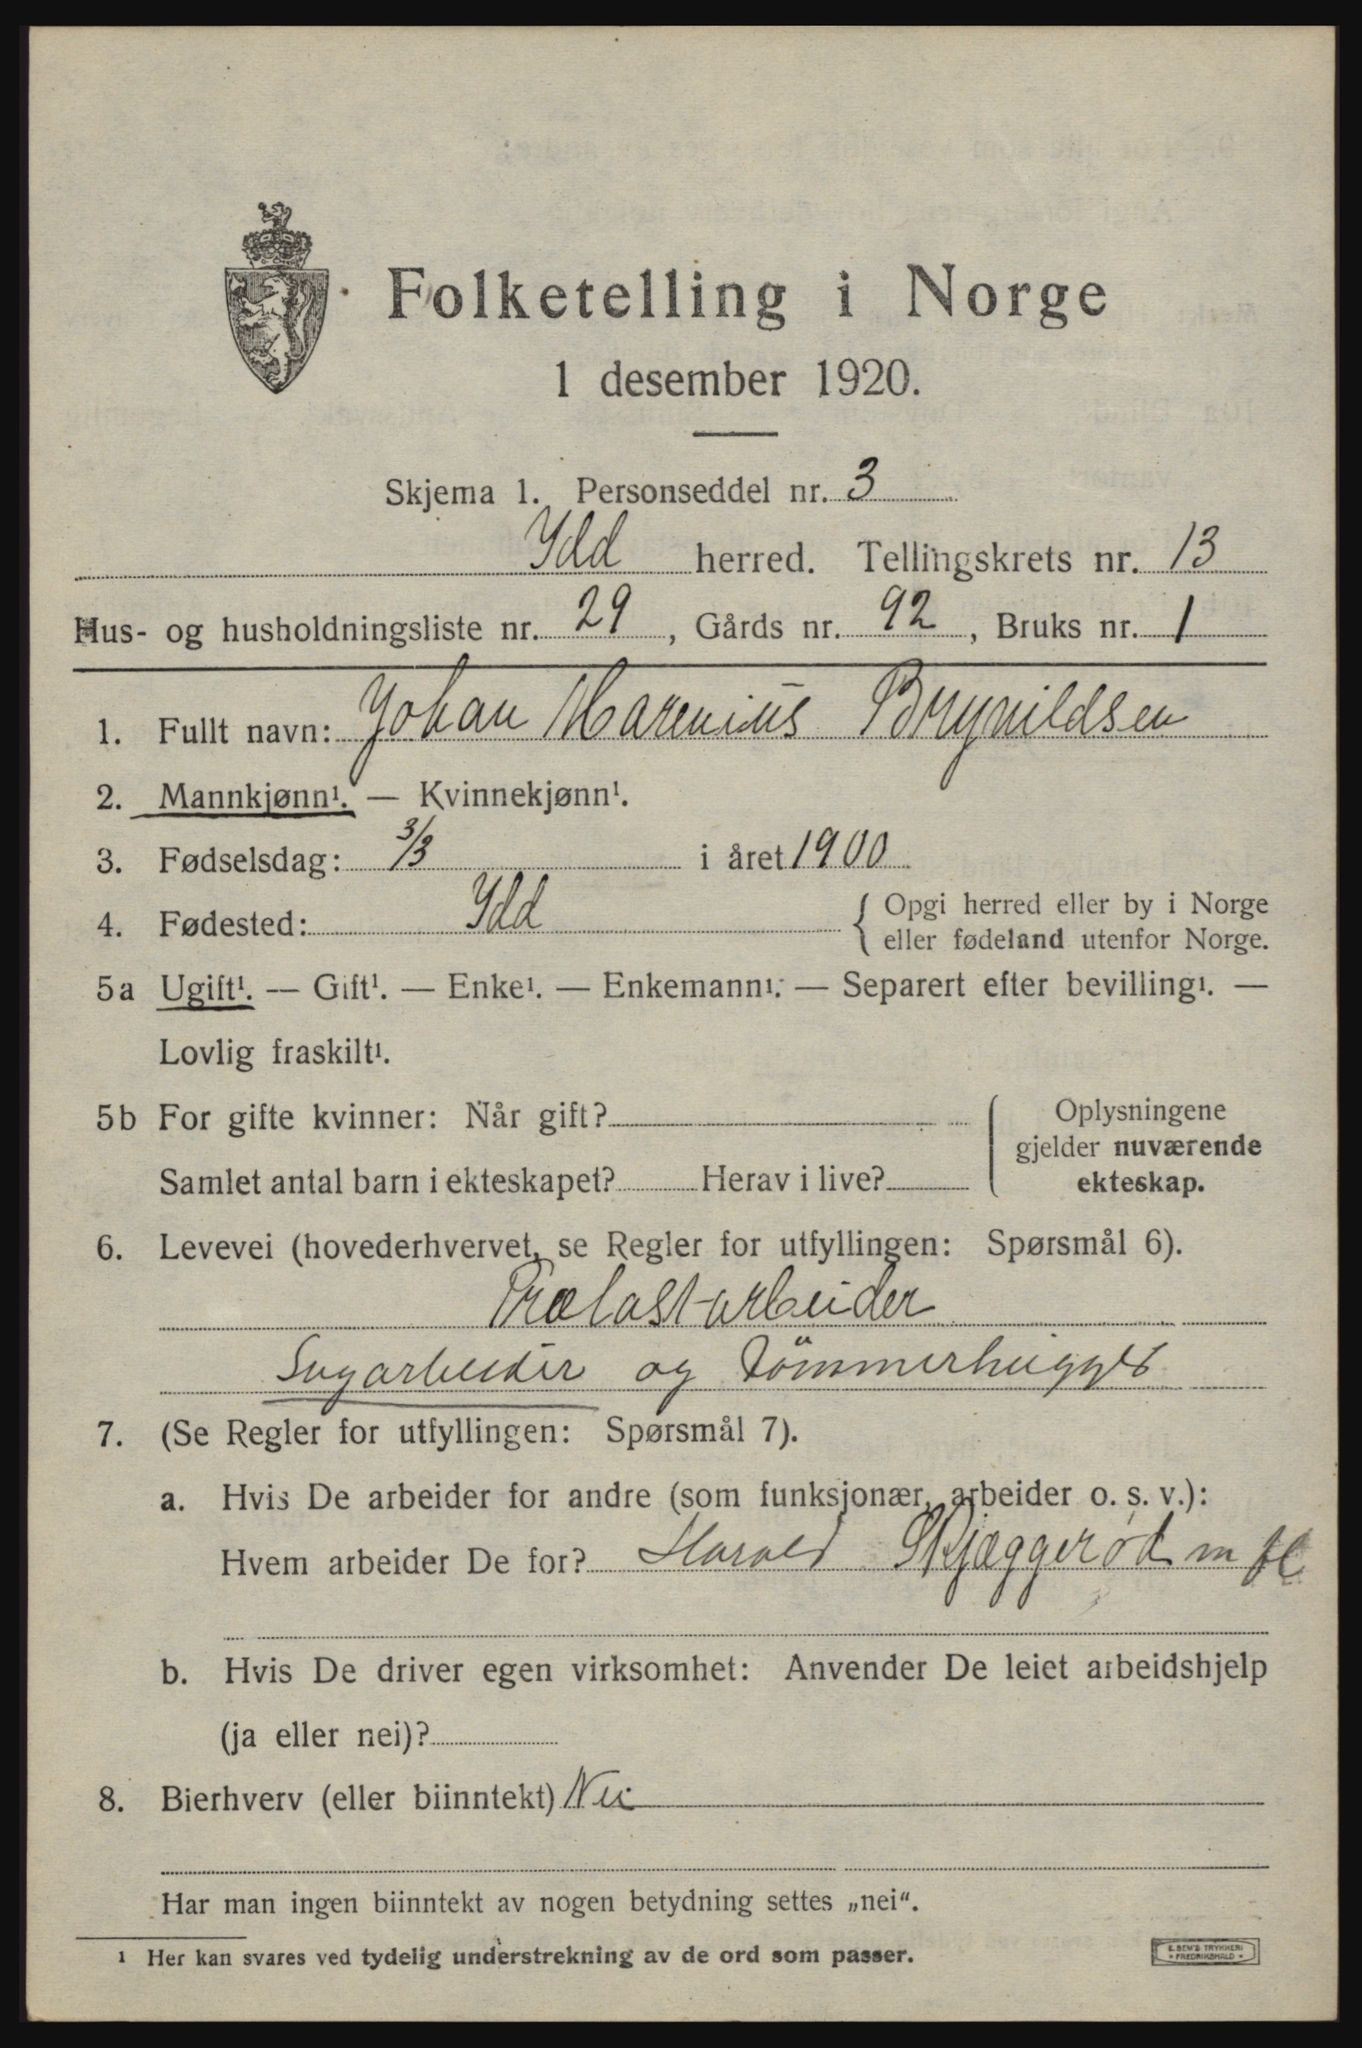 Folketelling i Norge
1 desember 1920.
Skjema 1. Personseddel nr. 3
Idd herred. Tellingskrets nr. 13
Hus- og husholdningsliste nr. 29, Gårds nr. 92, Bruks nr. 1
1. Fullt navn: Johan Marenius Brynildsen
2. Mannkjønn¹. — Kvinnekjønn¹.
3. Fødselsdag: 3/3 i året 1900
4. Fødested: Idd { Opgi herred eller by i Norge
eller fødeland utenfor Norge.
5a Ugift¹. — Gift¹. — Enke¹. — Enkemann¹. — Separert efter bevilling¹. —
Lovlig fraskilt¹.
5b For gifte kvinner: Når gift?
Samlet antal barn i ekteskapet? Herav i live?
Oplysningene
gjelder nuværende
ekteskap.
6. Levevei (hovederhvervet, se Regler for utfyllingen: Spørsmål 6).
Prælastarbeider
Sagarbeider og Tömmerhugger
7. (Se Regler for utfyllingen: Spørsmål 7).
a. Hvis De arbeider for andre (som funksjonær, arbeider o. s. v.):
Hvem arbeider De for? Harald Skjæggerød m fl
b. Hvis De driver egen virksomhet: Anvender De leiet arbeidshjelp
(ja eller nei)?
8. Bierhverv (eller biinntekt) Nei
Har man ingen biinntekt av nogen betydning settes „nei“.
¹ Her kan svares ved tydelig understrekning av de ord som passer.
E. SEM'S TRYKKERI
FREDRIKSHALD